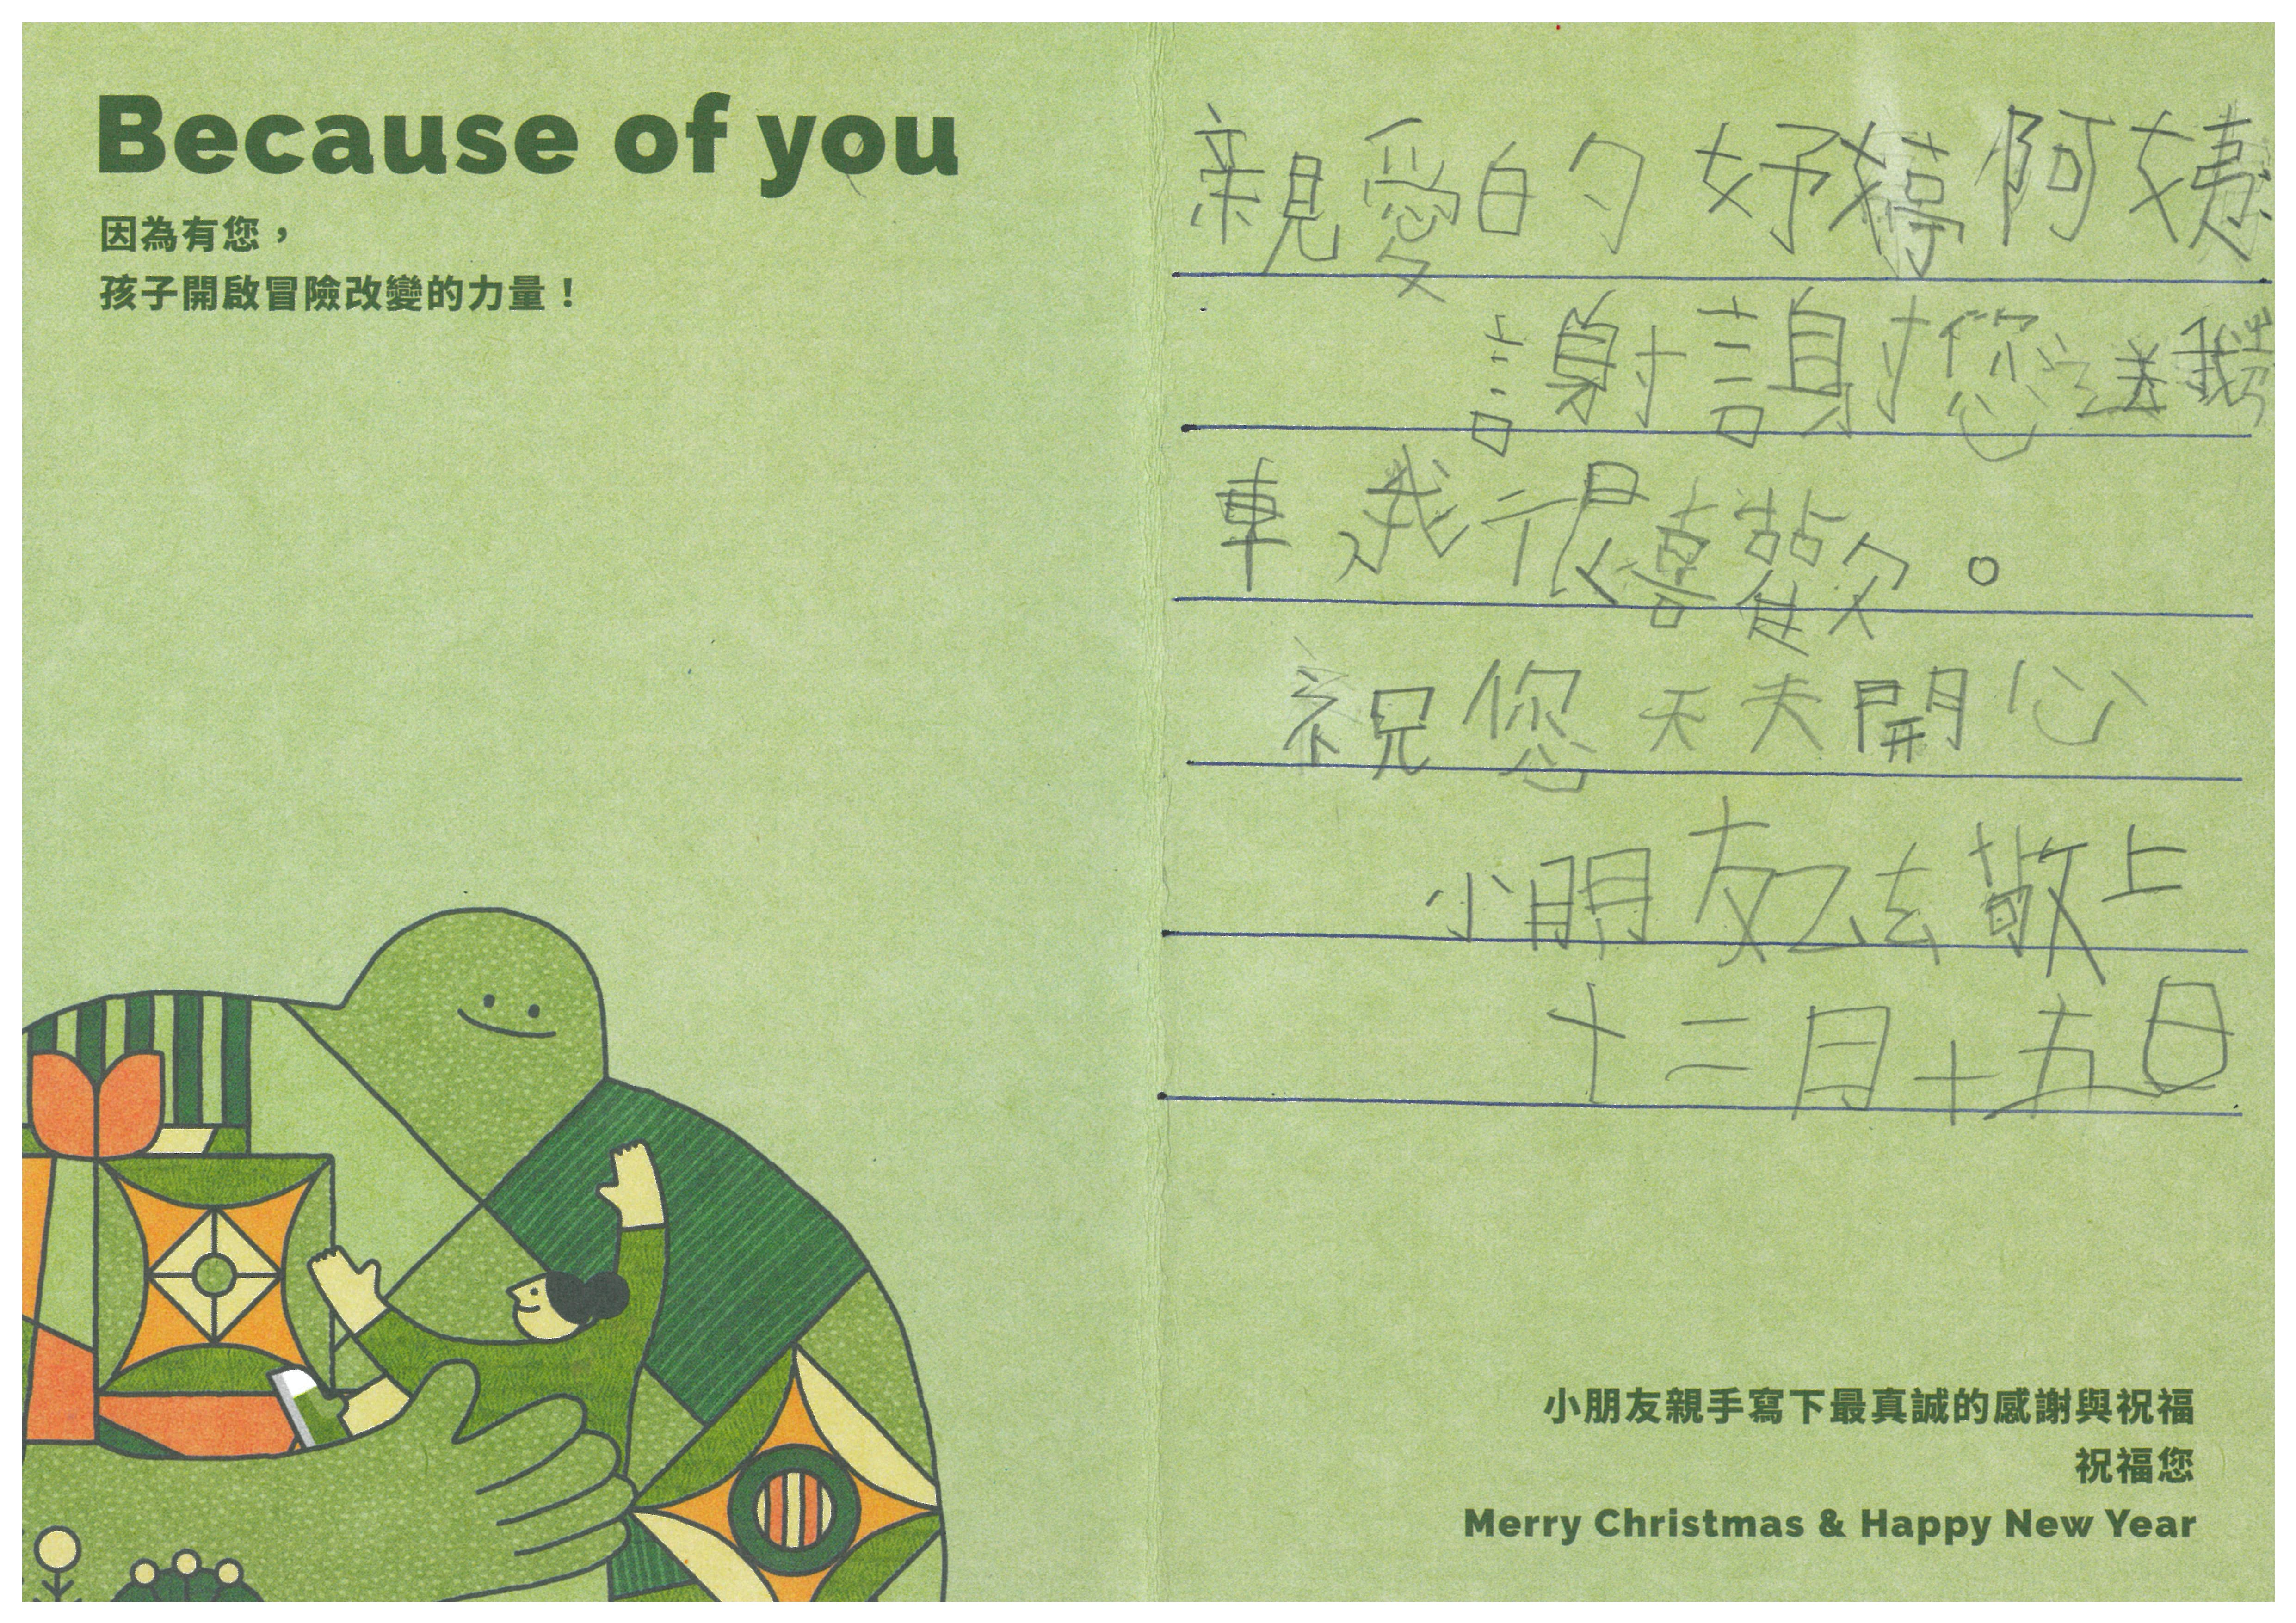 Because of you
因為有您，
孩子開啟冒險改變的力量！
親愛的妤婷阿姨
謝謝您送我
車，我很喜歡。
祝您天天開心
小朋友 敬上
十二月十五日
小朋友親手寫下最真誠的感謝與祝福
祝福您
Merry Christmas & Happy New Year